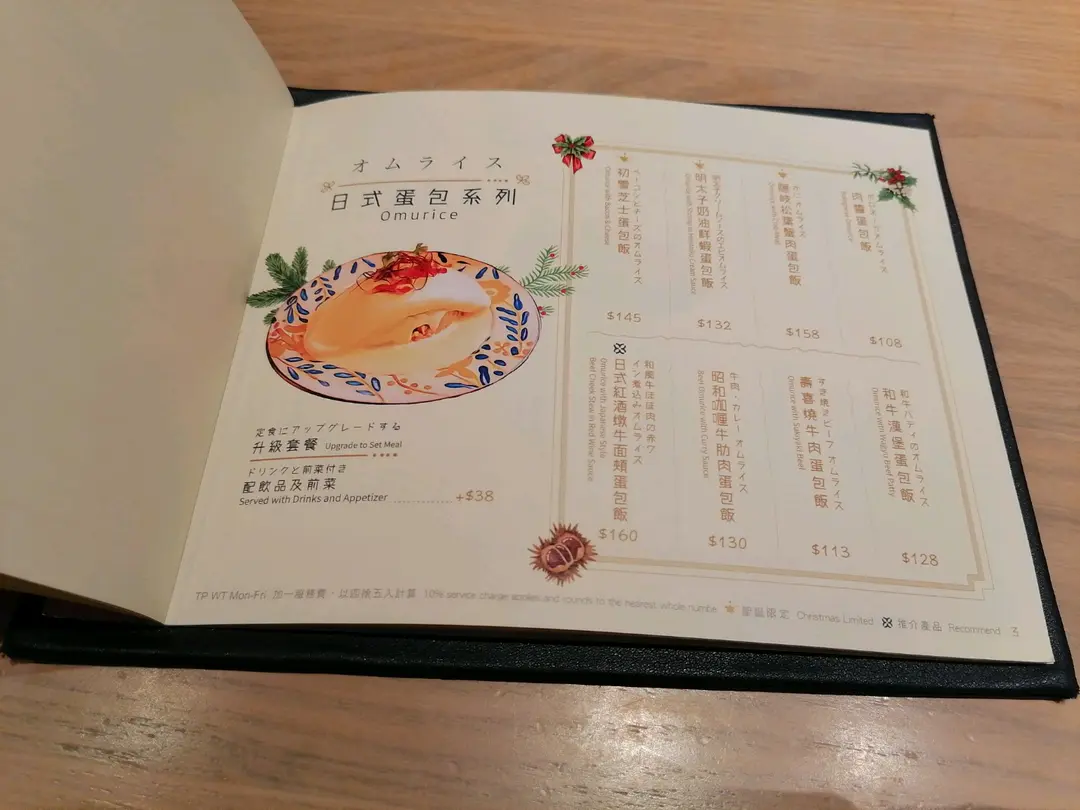 オムライス
日式蛋包系列
Omurice
定食にアップグレードする
升級套餐 Upgrade to Set Meal
ドリンクと前菜付き
配飲品及前菜
Served with Drinks and Appetizer +$38
ベーコンとチーズのオムライス
初雪芝士蛋包飯
$145
明太子クリームソースのエビオムライス
明太子奶油鮮蝦蛋包飯
Cream Sauce
$132
松葉蟹肉蛋包飯
$158
肉醬蛋包飯
$108
和風牛ほほ肉の赤ワ
イン煮込みオムライス
日式紅酒燉牛面頰蛋包飯
Omurice with Japanese Style
Beef Cheek Stew in Red Wine Sauce
$160
牛肉・カレー オムライス
昭和咖喱牛肋肉蛋包飯
Beef Omurice with Curry Sauce
$130
すき焼きビーフ オムライス
壽喜燒牛肉蛋包飯
Omurice with Sukiyaki Beef
$113
和牛パティのオムライス
和牛漢堡蛋包飯
Omurice with Wagyu Beef Patty
$128
TP WT Mon-Fri 加一服務費，以四捨五入計算 10% service charge applies and rounds to the nearest whole numbe 聖誕限定 Christmas Limited 推介產品 Recommend 3